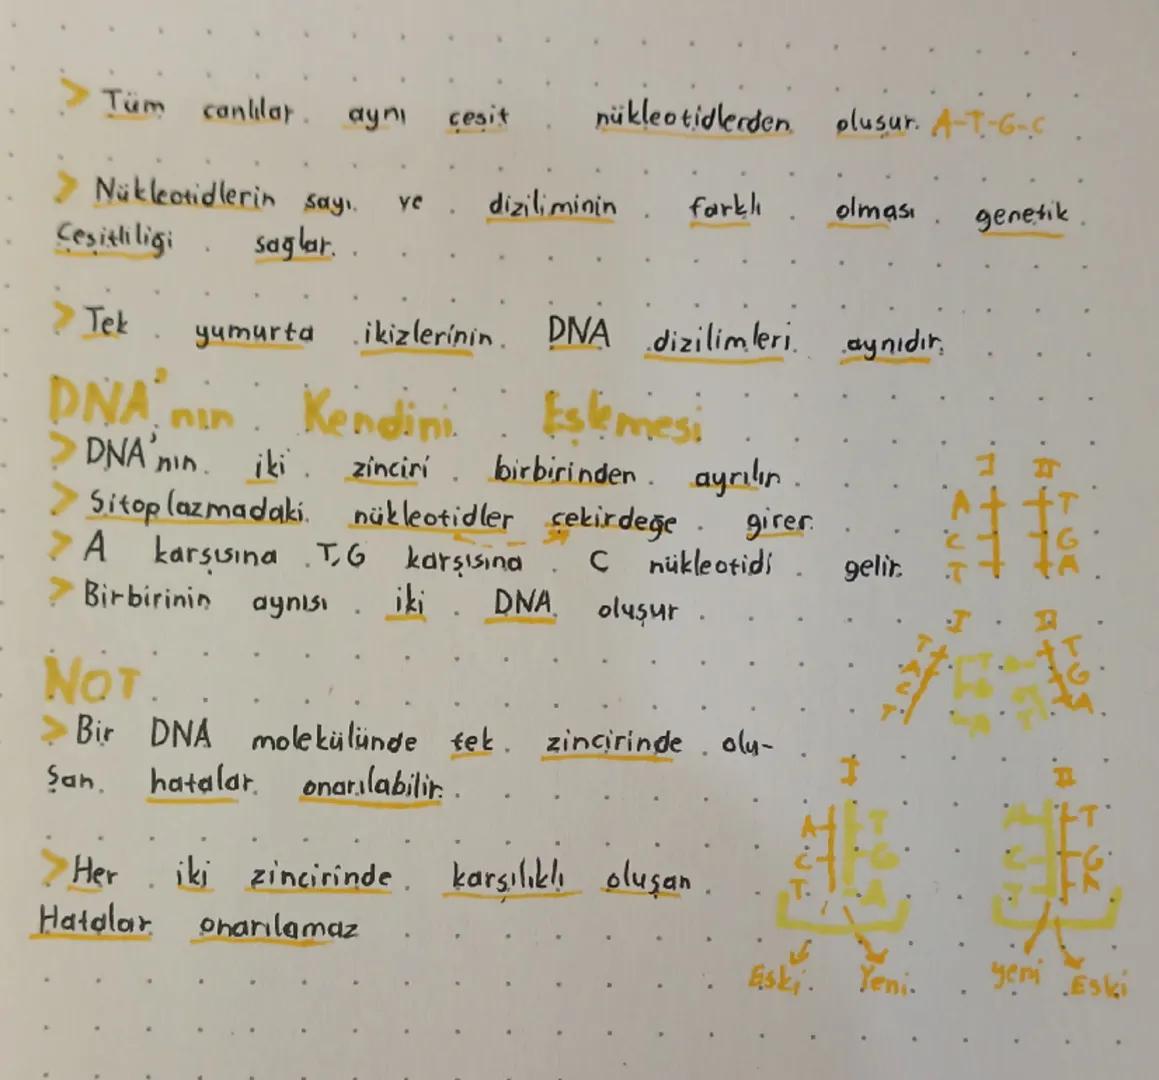 > Tüm canlılar aynı çeşit nükleotidlerden oluşur. A-T-G-C
> Nükleotidlerin sayı ve diziliminin farklı olması genetik
Çeşitliliği sağlar.
> Tek yumurta ikizlerinin DNA dizilimleri aynıdır.
DNA'nın Kendini Eşlemesi
> DNA'nın iki zinciri birbirinden ayrılır.
> Sitoplazmadaki nükleotidler çekirdeğe girer.
> A karşısına T, G karşısına C nükleotidi gelir.
> Birbirinin aynısı iki DNA oluşur
NOT
> Bir DNA molekülünde tek zincirinde olu-
şan hatalar onarılabilir.
> Her iki zincirinde karşılıklı oluşan
Hatalar onarılamaz
I II
A T
C G
T A
I II
T T T
A G G
C A A
T T
I II
A T A T
C G C G
T A T A
Eski Yeni yeni Eski